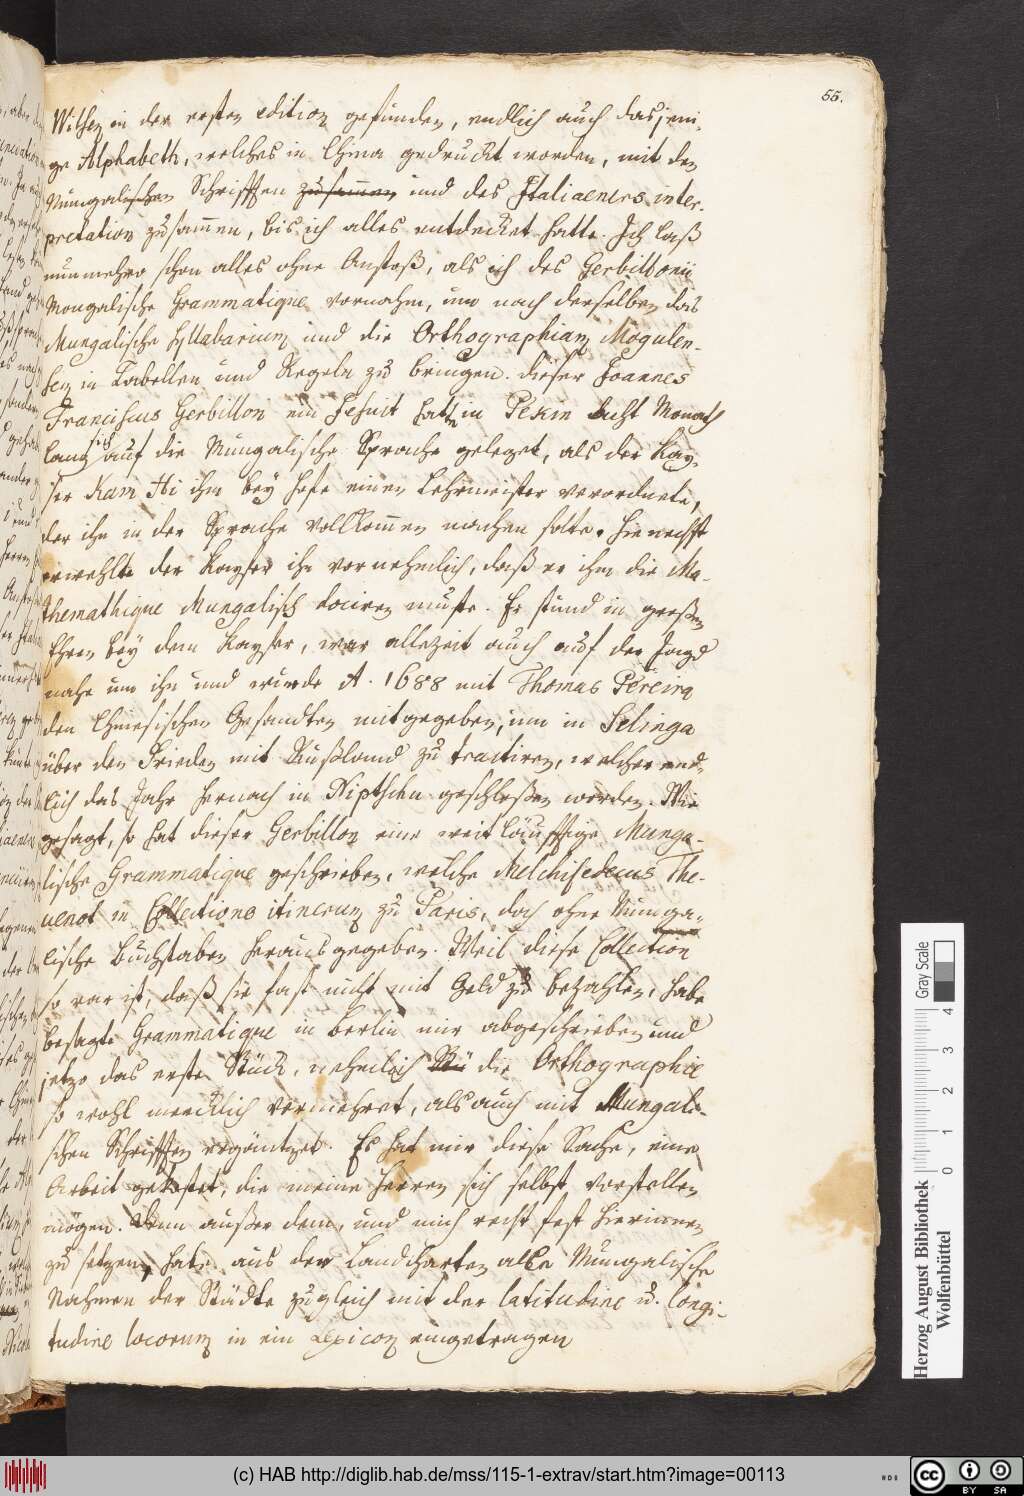 55.
Witsen in der ersten edition gefunden, endlich auch dasjeni-
ge Alphabeth, welches in China gedruckt worden, mit den
Mungalischen Schrifften zusamen und des Italiaeners inter-
pretation zusamen, bis ich alles entdecket hatte. Ich laß
nunmehro schon alles ohne Anstoß, als ich des Gerbillonii
Mongalische Grammatique vornahm, um nach derselben das
Mungalische Syllabarium und die Orthographiam Mogulen-
sem in Tabellen und Regeln zu bringen. dieser Joannes
Franciscus Gerbillon ein Jesuit hatte in Pekin acht Monath
lang sich auf die Mungalische Sprache geleget, als der Kay-
ser Kam Hi ihm bey Hofe einen Lehrmeister verordnete,
der ihn in der Sprache vollkomen machen solte. Hienechst
erwehlte der Kayser ihn vornehmlich, daß er ihm die Ma-
themathique Mungalisch dociren muste. Er stund in großen
Ehren bey dem Kayser, war allezeit auch auf der Jagd
nahe um ihn und wurde A. 1688 mit Thomas Pereira
den Chinesischen Gesandten mitgegeben, um in Selinga
über den Frieden mit Rußland zu tractiren, welcher end-
lich das Jahr hernach in Niptschu geschloßen worden. Wie
gesagt, so hat dieser Gerbillon eine weitläufftige Munga-
lische Grammatique geschrieben, welche Melchisedecus The-
venot in Collectione itinerum zu Paris, doch ohne Munga-
lische Buchstaben herausgegeben. Weil diese Collection
so rar ist, daß sie fast nicht mit Geld zu bezahlen, habe
besagte Grammatique in Berlin mir abgeschrieben und
jetzo das erste Stück, nehmlich die Orthographie
so wohl mercklich vermehret, als auch mit Mungali-
schen Schrifften ergäntzet. Es hat mir diese Sache, eine
Arbeit gekostet, die meine Herren sich selbst vorstellen
mögen. Denn außer dem, und mich recht fest hierinnen
zu setzen, habe aus den Landcharten alle Mungalische
Nahmen der Städte zugleich mit der latitudine u. longi-
tudine locorum in ein Lexicon eingetragen
Herzog August Bibliothek Wolfenbüttel
Gray Scale
0 1 2 3 4
(c) HAB http://diglib.hab.de/mss/115-1-extrav/start.htm?image=00113
cc BY SA